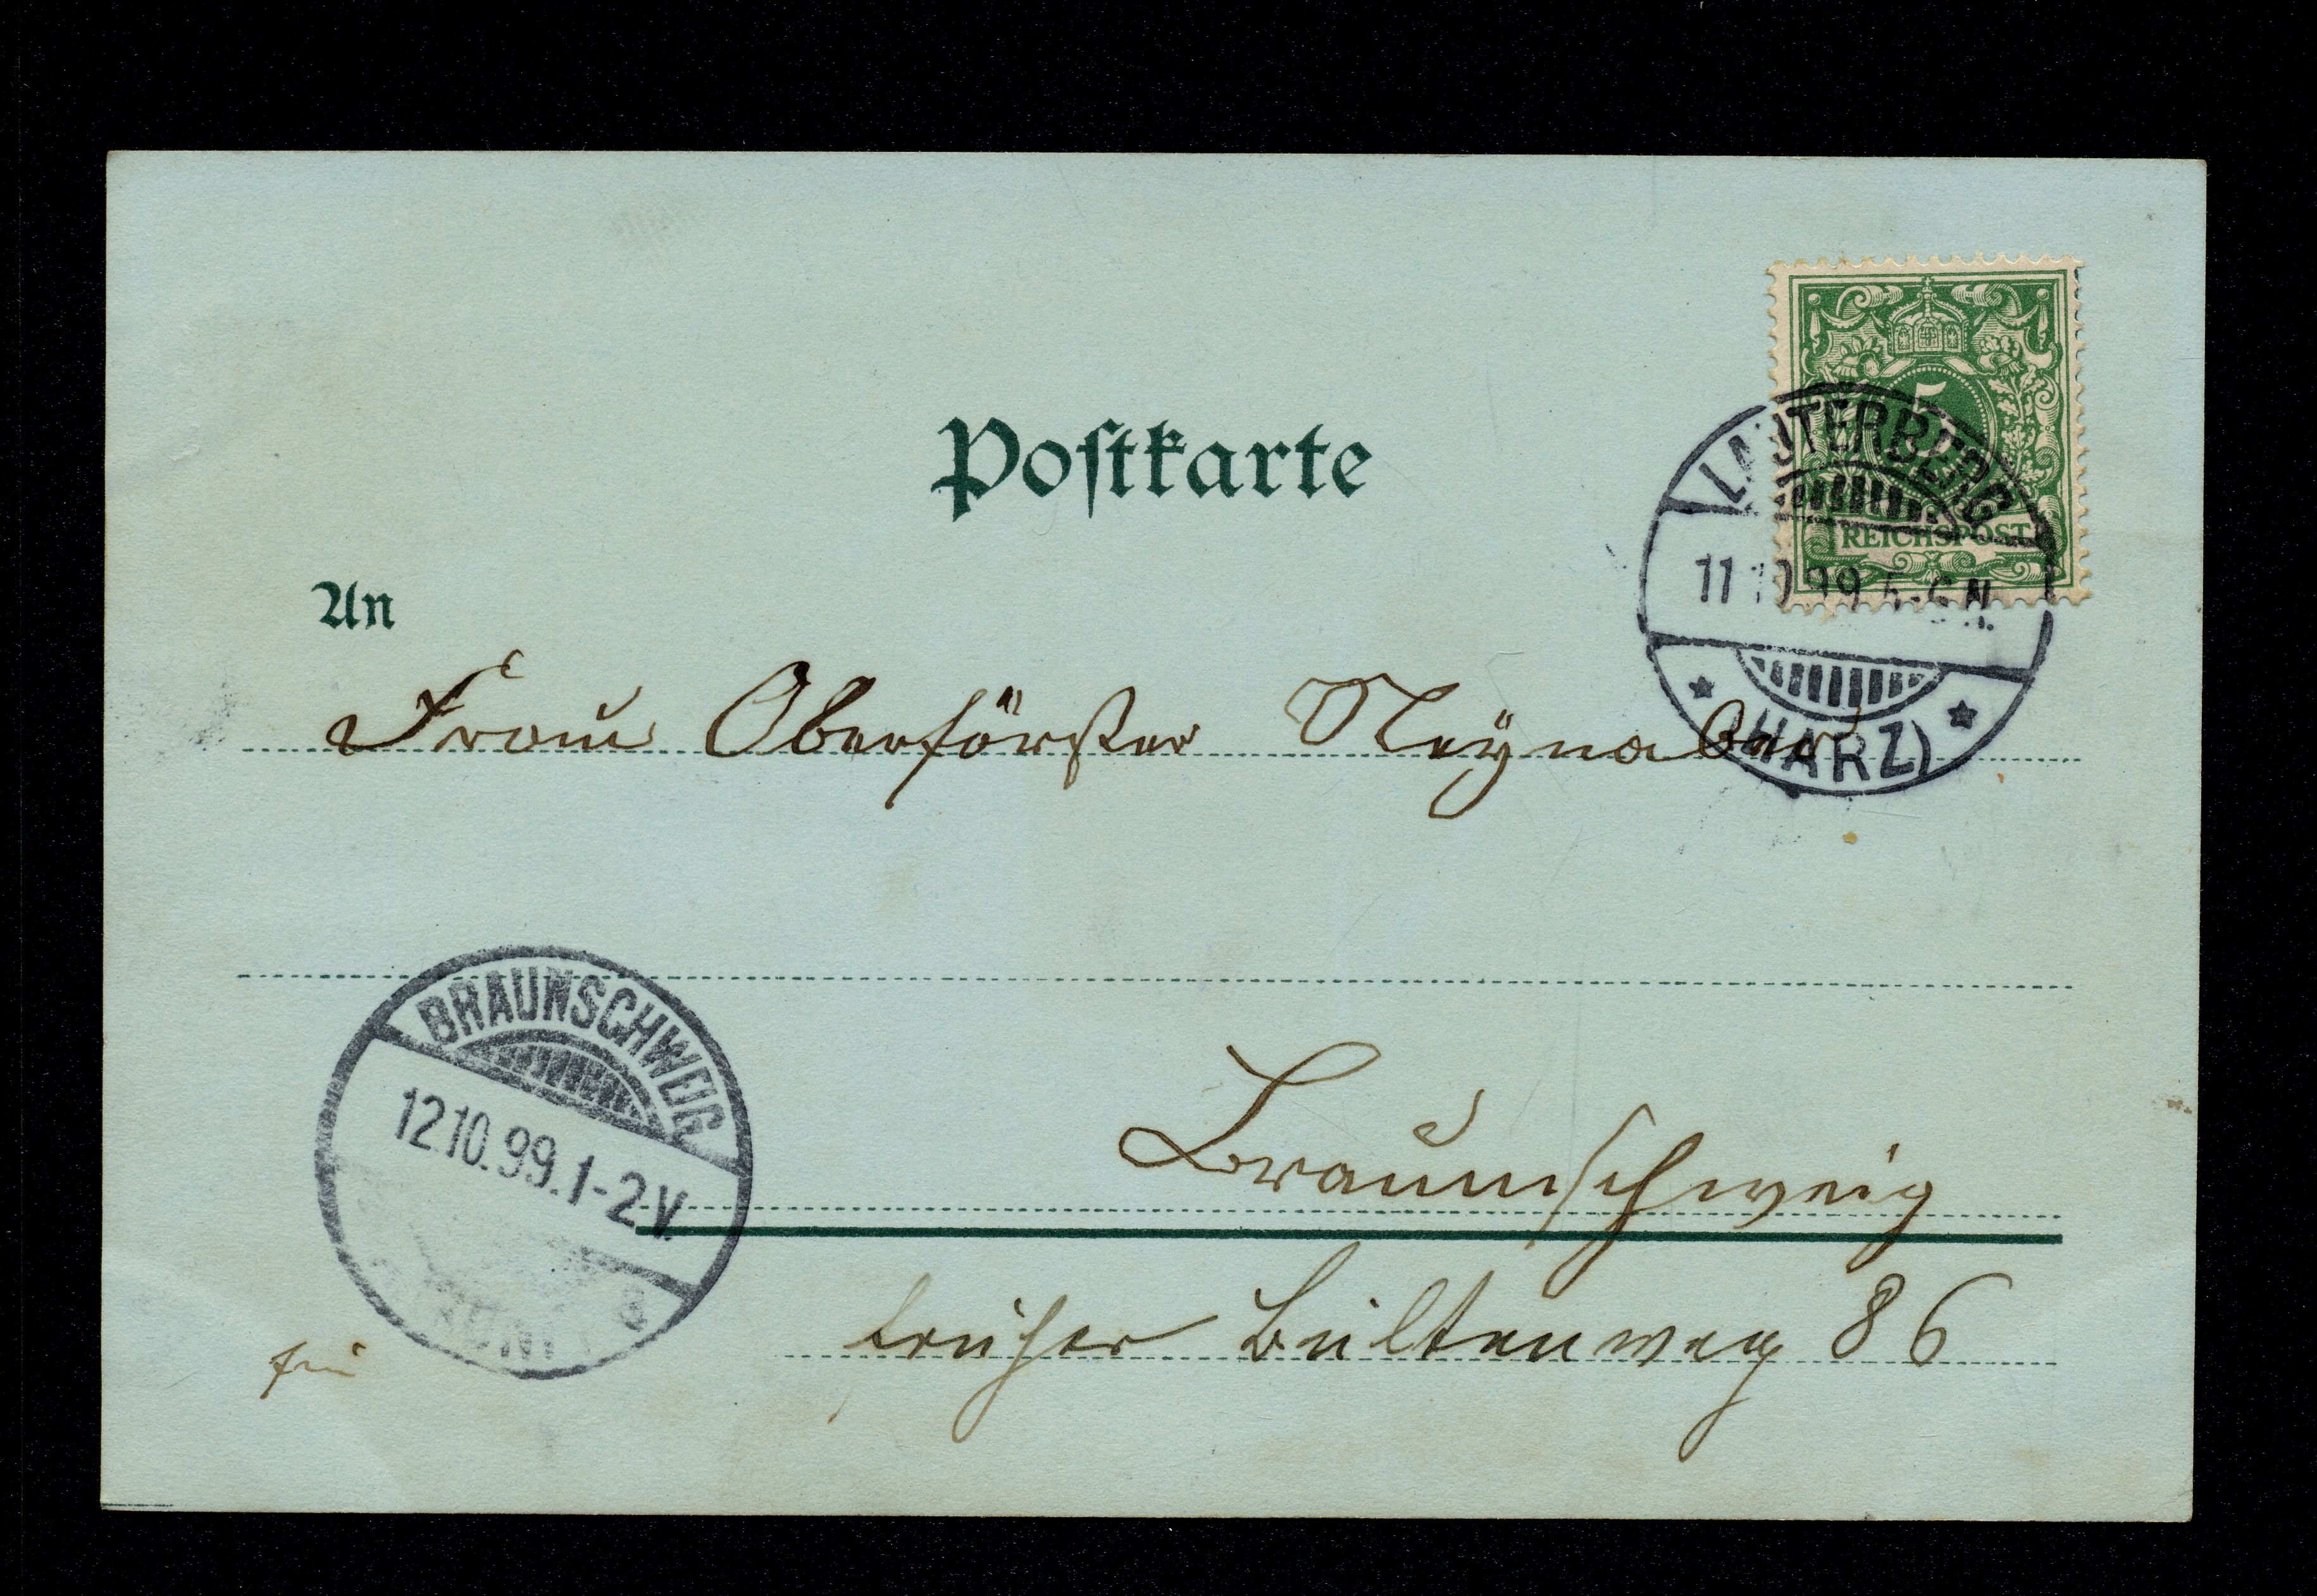 Postkarte
5
REICHSPOST
LAUTERBERG
11 10 99 5-6 N.
(HARZ)
An
Frau Oberförster Neynaber
BRAUNSCHWEIG
12 10. 99. 1-2 V.
Braunschweig
früher Bültenweg 86